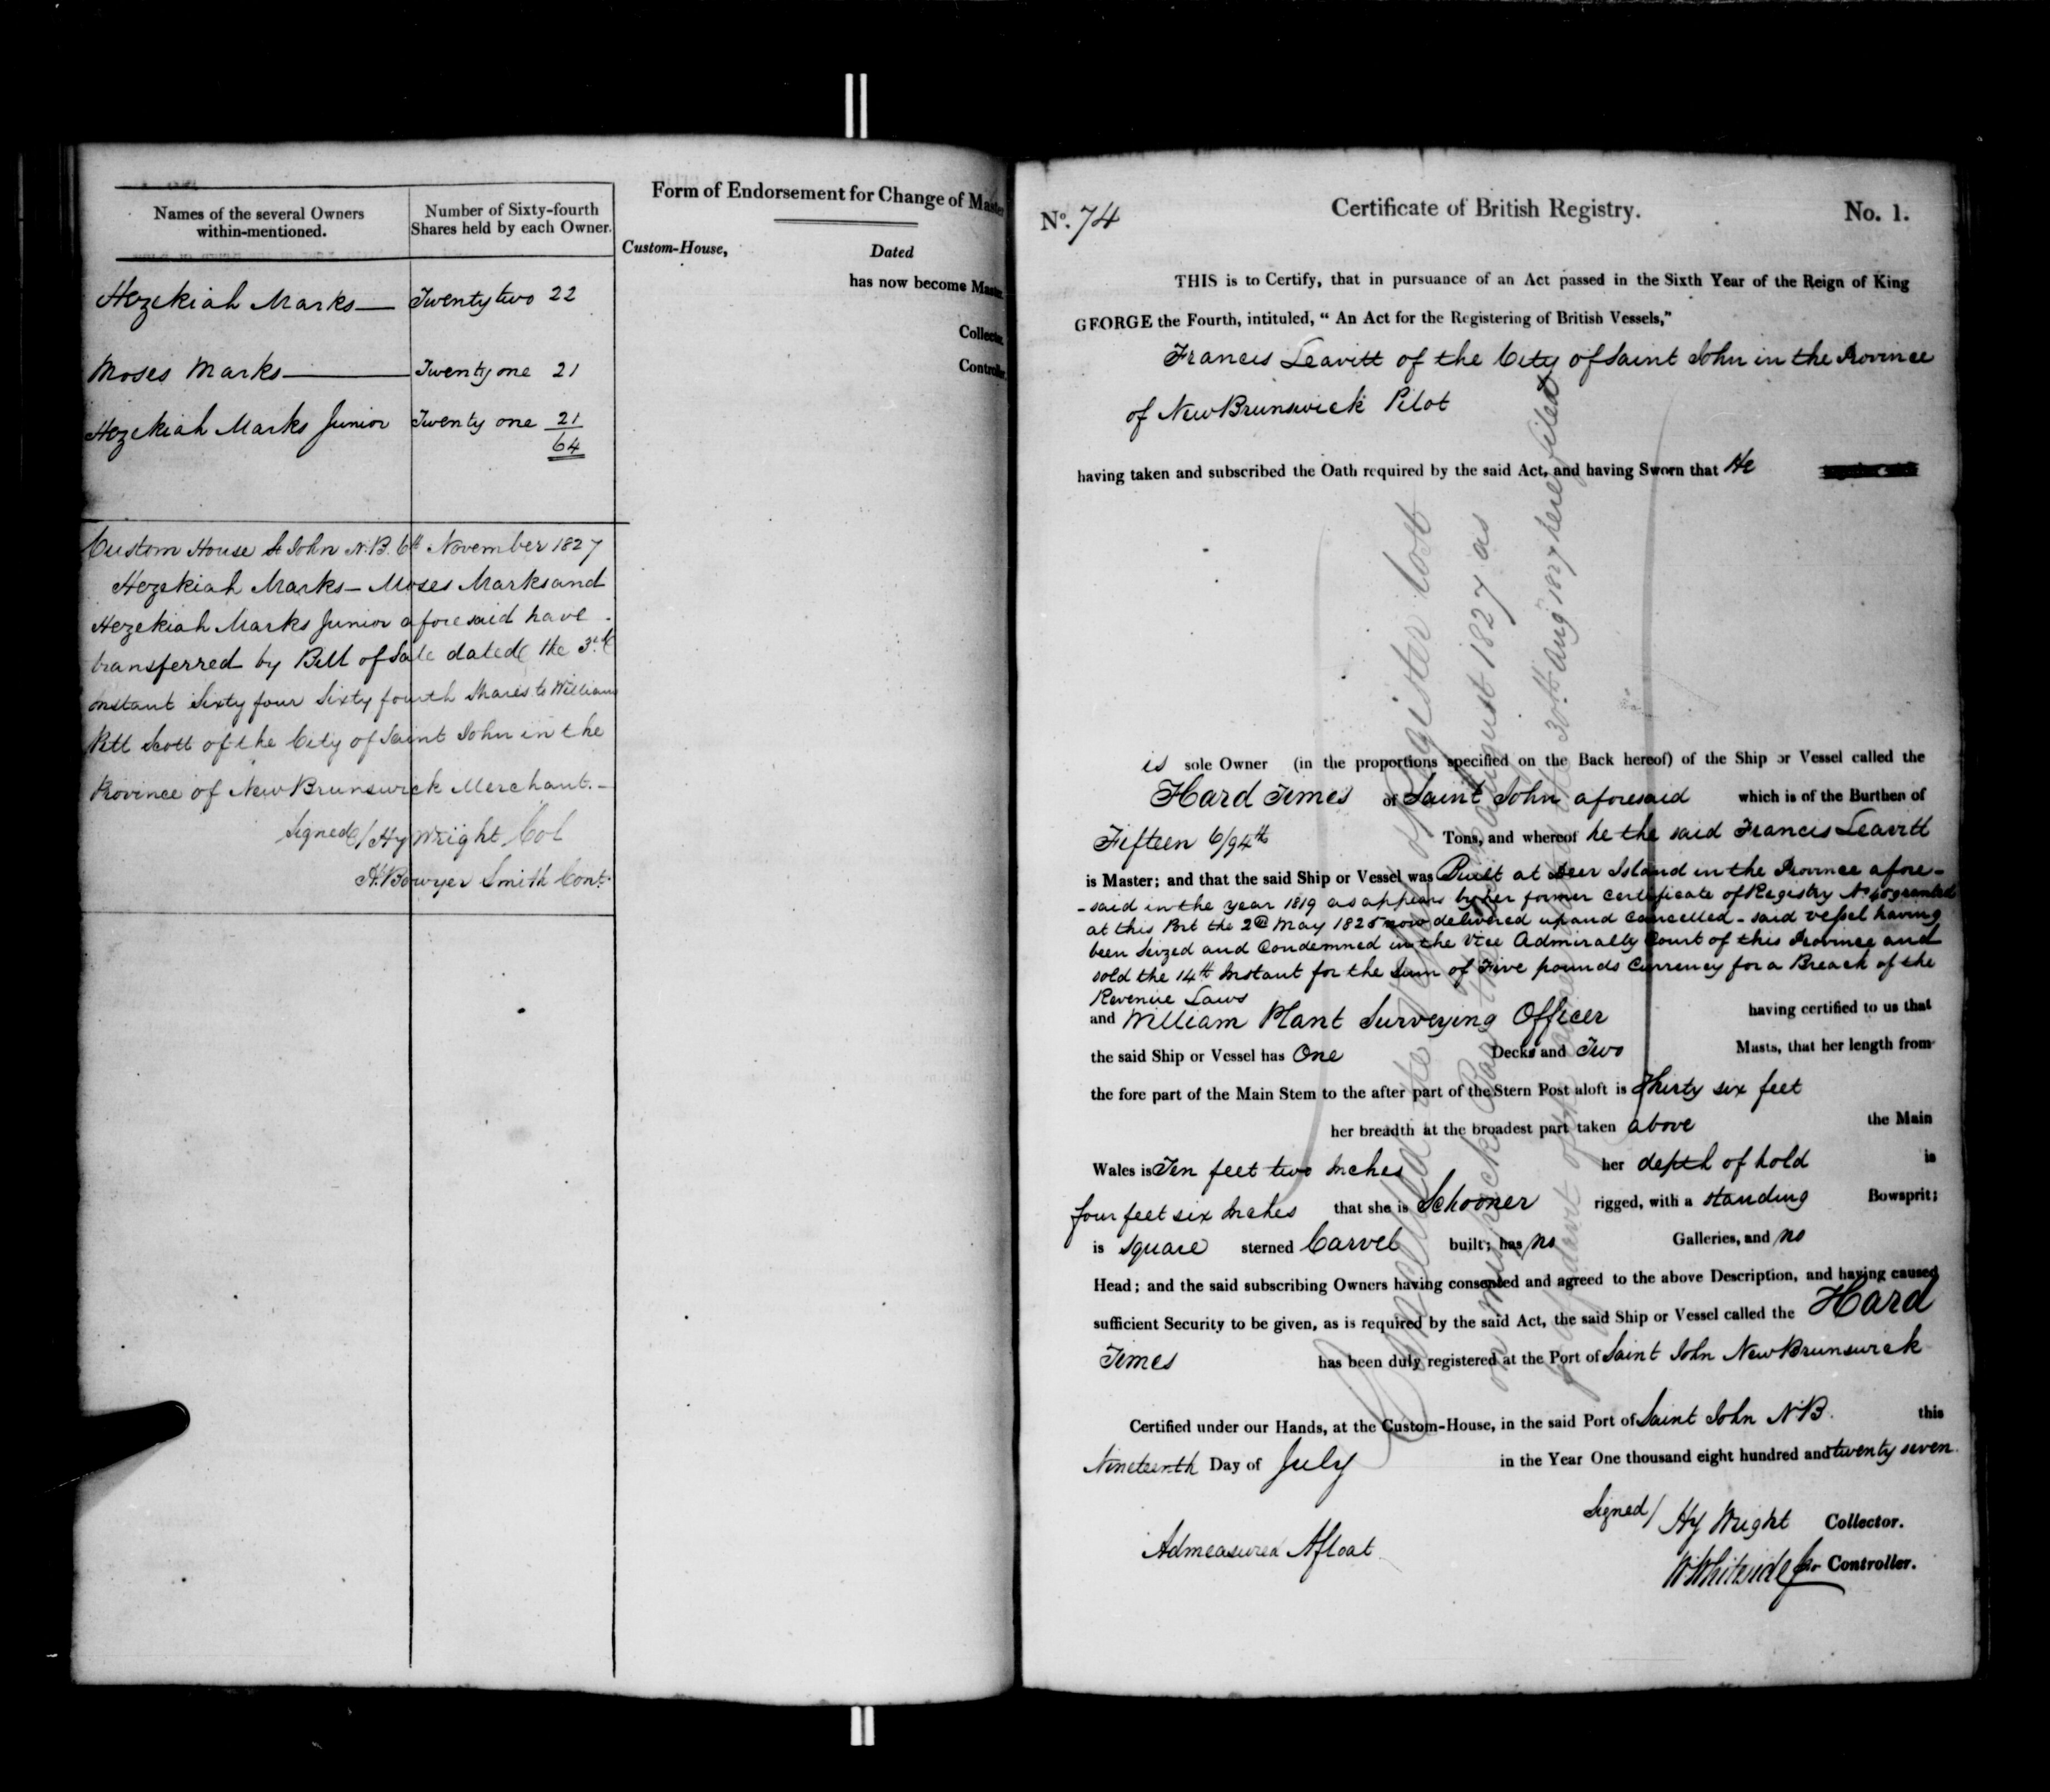 Names of the several Owners
within-mentioned.
Number of Sixty-fourth
Shares held by each Owner.
Hezekiah Marks — Twenty two 22
Moses Marks — Twenty one 21
Hezekiah Marks Junior Twenty one 21
64
Custom House St John N.B. 6th November 1827
Hezekiah Marks — Moses Marks and
Hezekiah Marks Junior aforesaid have
transferred by Bill of Sale dated the 3rd
Instant Sixty four Sixty fourth Shares to William
Pitt Scott of the City of Saint John in the
Province of New Brunswick Merchant.—
Signed/ Hy Wright Col
H. Bowyer Smith Cont.
Form of Endorsement for Change of Master
Custom-House, Dated
has now become Master
Collector.
Controller.
No. 74 Certificate of British Registry. No. 1.
THIS is to Certify, that in pursuance of an Act passed in the Sixth Year of the Reign of King
GEORGE the Fourth, intituled, “ An Act for the Registering of British Vessels,”
Francis Leavitt of the City of Saint John in the Province
of New Brunswick Pilot
having taken and subscribed the Oath required by the said Act, and having Sworn that He
is sole Owner (in the proportions specified on the Back hereof) of the Ship or Vessel called the
Hard Times of Saint John aforesaid which is of the Burthen of
Fifteen 6/94th Tons, and whereof he the said Francis Leavitt
is Master; and that the said Ship or Vessel was Built at Deer Island in the Province afore-
-said in the year 1819 as appears by her former Certificate of Registry No 40 granted
at this Port the 2d May 1825 now delivered up and Cancelled - said vessel having
been Seized and Condemned in the Vice Admiralty Court of this Province and
sold the 14th Instant for the Sum of Five pounds Currency for a Breach of the
Revenue Laws
and William Plant Surveying Officer having certified to us that
the said Ship or Vessel has One Decks and Two Masts, that her length from
the fore part of the Main Stem to the after part of the Stern Post aloft is Thirty six feet
her breadth at the broadest part taken above the Main
Wales is Ten feet two Inches her depth of hold is
four feet six Inches that she is Schooner rigged, with a standing Bowsprit;
is square sterned Carvel built; has no Galleries, and no
Head; and the said subscribing Owners having consented and agreed to the above Description, and having caused
sufficient Security to be given, as is required by the said Act, the said Ship or Vessel called the Hard
Times has been duly registered at the Port of Saint John New Brunswick
Certified under our Hands, at the Custom-House, in the said Port of Saint John N.B. this
Nineteenth Day of July in the Year One thousand eight hundred and twenty seven.
Signed/ Hy Wright Collector.
W Whiteside for Controller.
Admeasured Afloat
Cancelled the Vessel & Register lost
on August 1827 as
30th Augt 1827 here filed